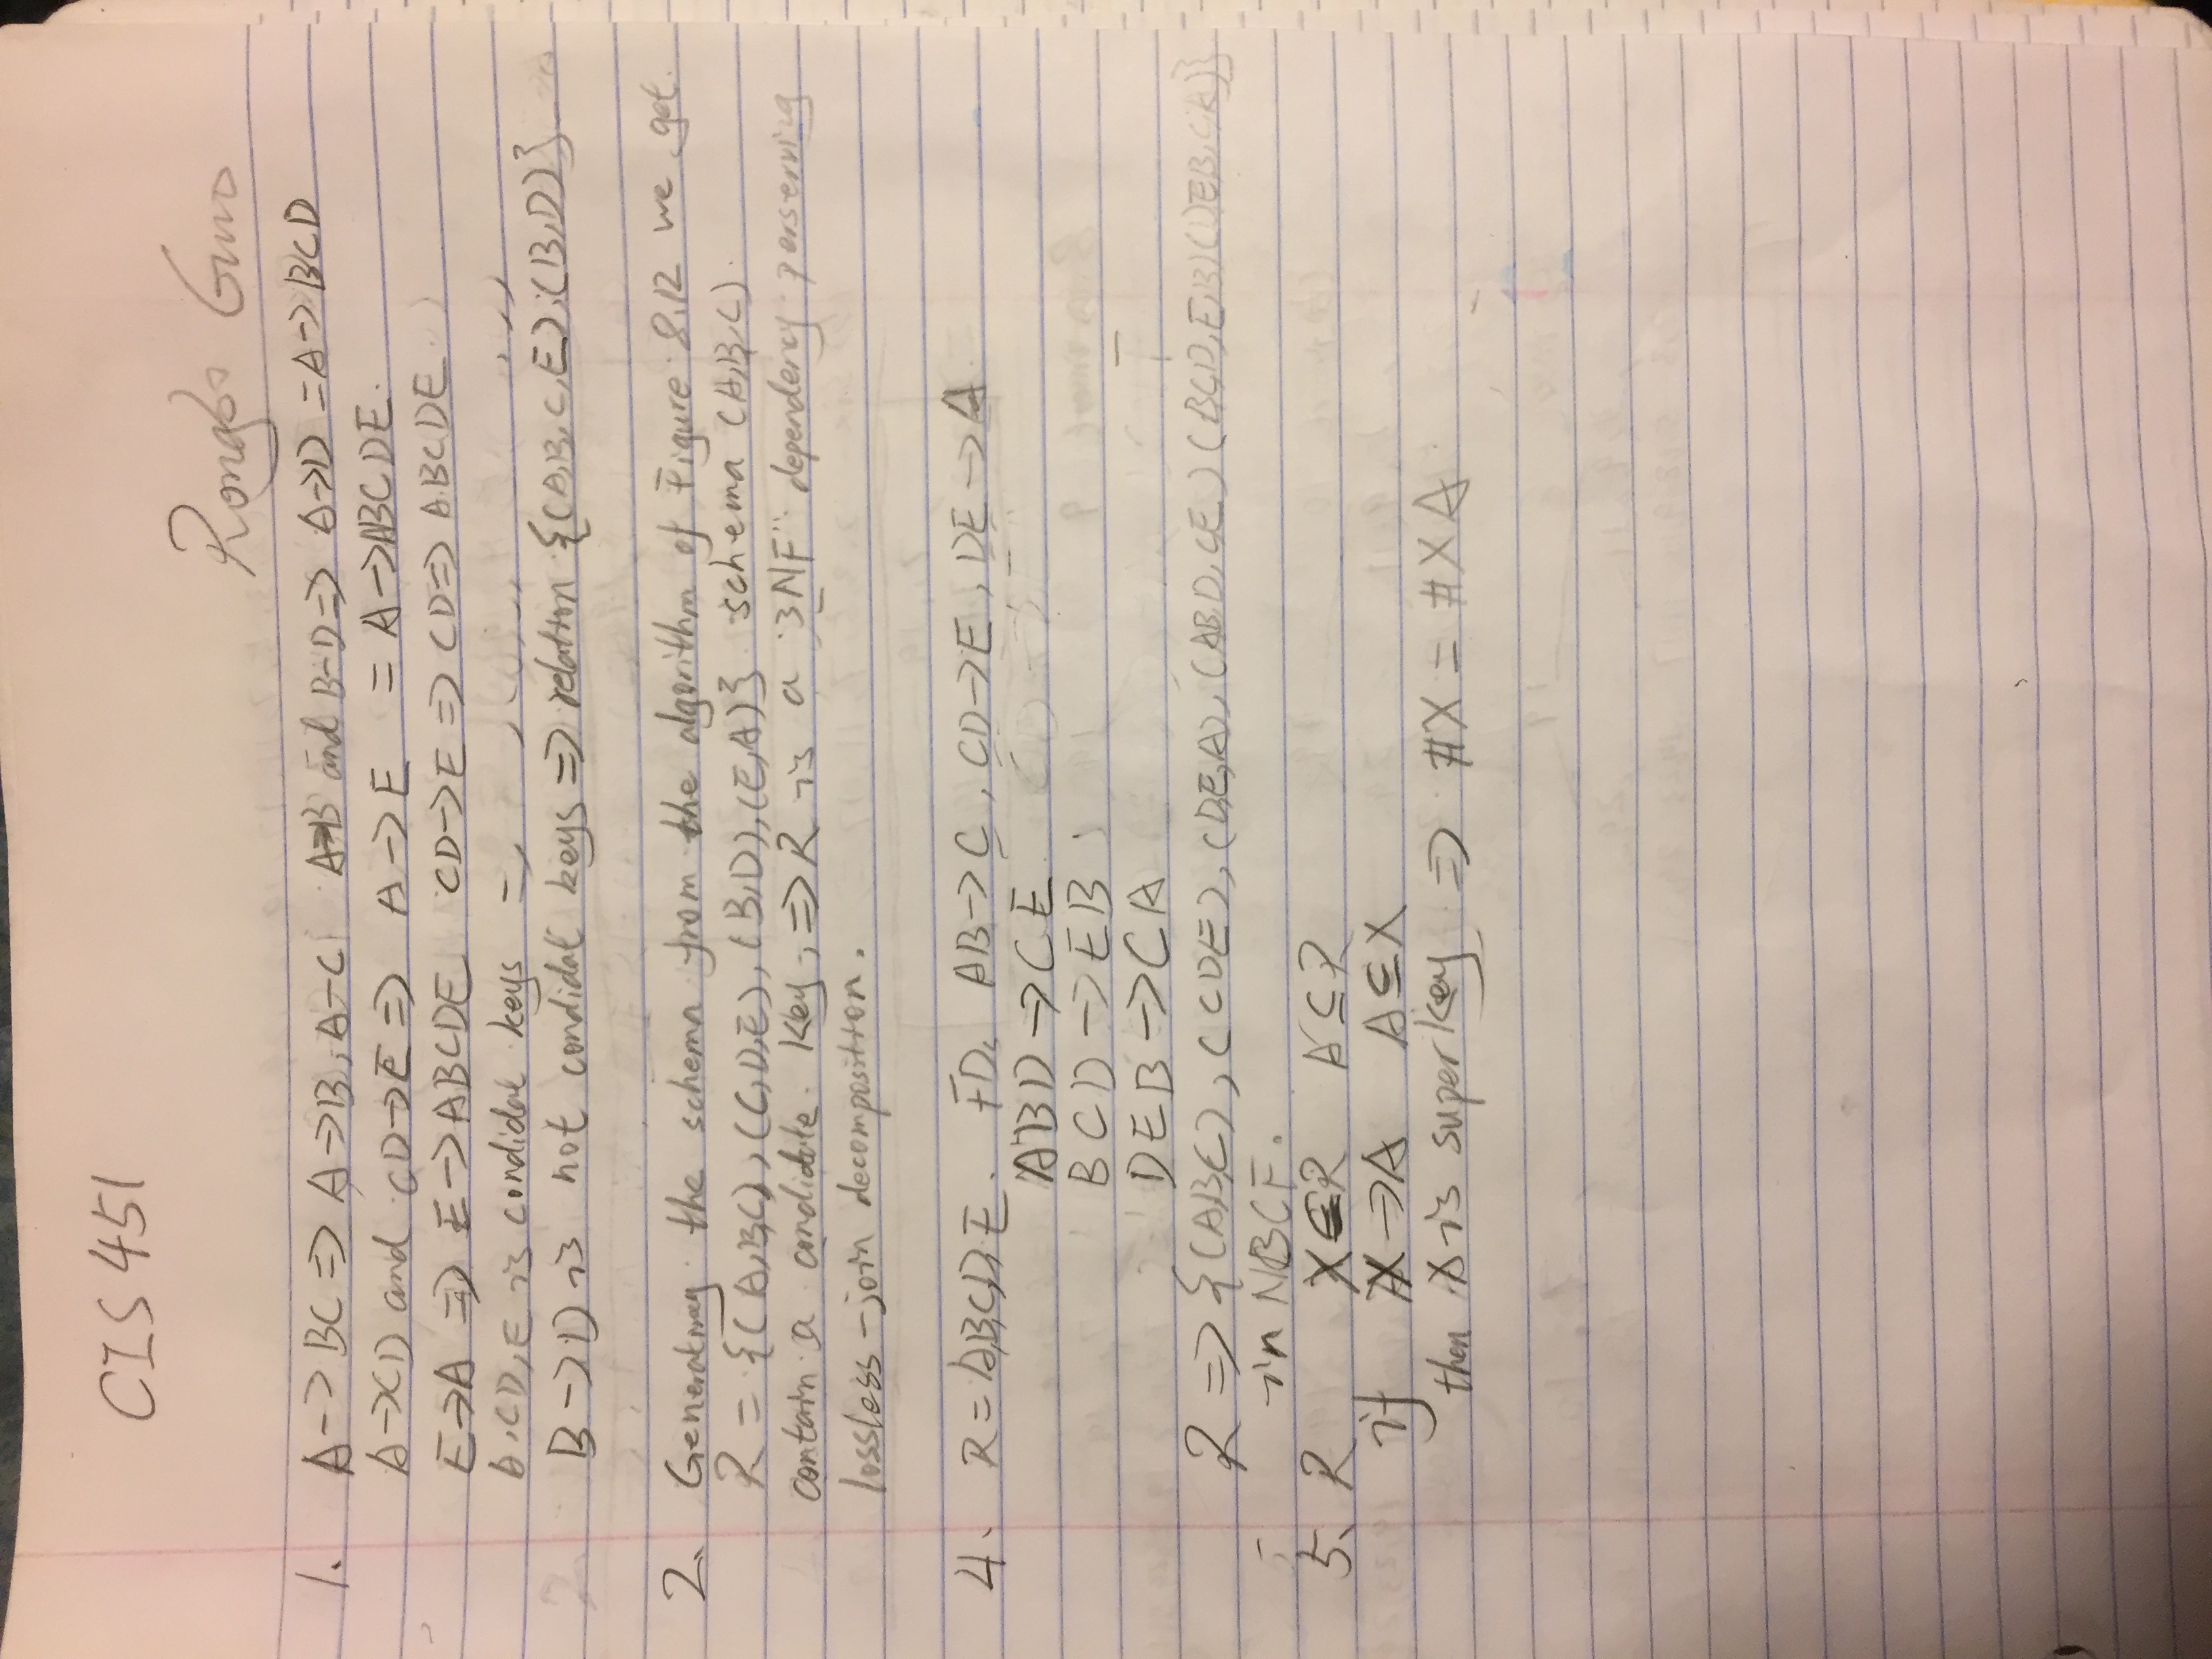 CIS 451
Rongbo Guo
1. A -> BC => A -> B, A - C A -> B and B - D => A -> D = A -> BCD
A -> CD and CD -> E => A -> E = A -> ABCDE.
E -> A => E -> ABCDE CD -> E => CD => ABCDE
A, CD, E is condidat keys =
B -> D is not condidat keys => relation {(A,B,C,E),(B,D)}
2. Generating the schema from the algorithm of Figure 8.12 we get.
R = {(A,B,C), (C,D,E), (B,D), (E,A)} schema (A,B,C).
contain a candidate key, => R is a "3NF" dependency perserving
lossless-join decomposition.
4. R = A,B,C,D,E. FD. AB -> C, CD -> E, DE -> A
ABD -> CE
BCD -> EB
DEB -> CA
R => {(A,B,C), (CDE), (D,E,A), (ABD,CE) (BCD,E,B) (DEB,C,A)}
in NBCF.
5. R X ⊆ R A ⊆ R
if X -> A A ⊆ X
then X is superkey => #X = #XA